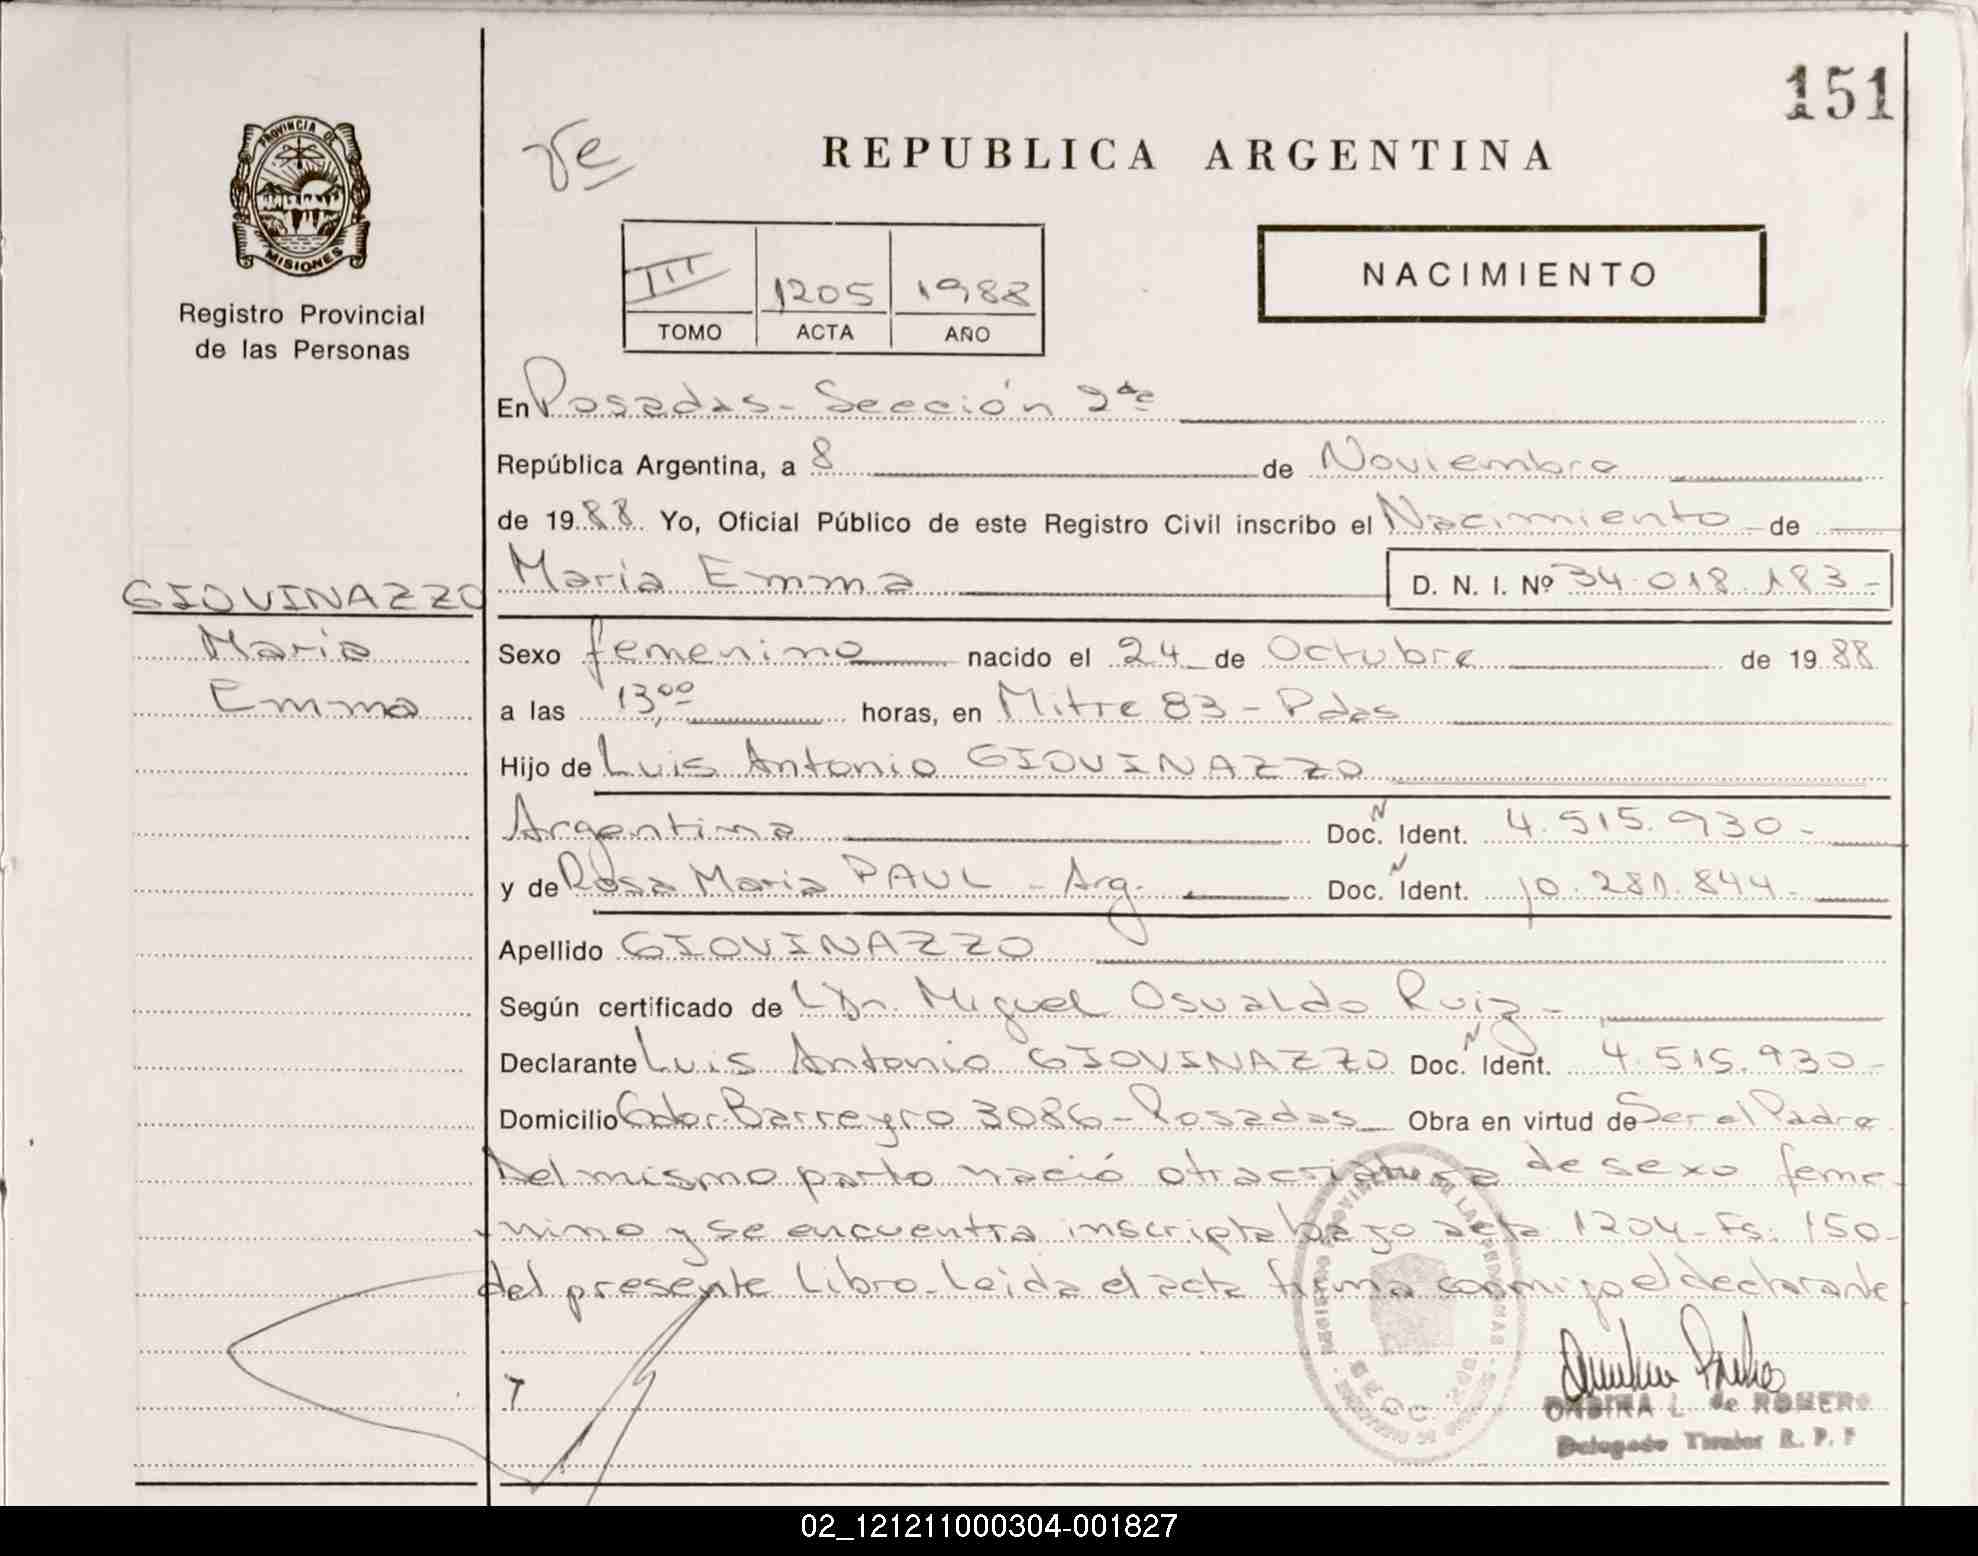 151
PROVINCIA DE
MISIONES
Registro Provincial
de las Personas
REPUBLICA ARGENTINA
III 1205 1988
TOMO ACTA AÑO
NACIMIENTO
En Posadas - Sección 2da
República Argentina, a 8 de Noviembre
de 1988 Yo, Oficial Público de este Registro Civil inscribo el Nacimiento de
GIOVINAZZO
Maria
Emma
Maria Emma D. N. I. Nº 34.018.183-
Sexo femenino nacido el 24 de Octubre de 1988
a las 13,00 horas, en Mitre 83 - Pdas
Hijo de Luis Antonio GIOVINAZZO
Argentina Doc. Ident. 4.515.930-
y de Rosa Maria PAUL - Arg. Doc. Ident. 10.281.844-
Apellido GIOVINAZZO
Según certificado de Dr. Miguel Osvaldo Ruiz -
Declarante Luis Antonio GIOVINAZZO Doc. Ident. 4.515.930-
Domicilio Gdor. Barreyro 3086 - Posadas Obra en virtud de Ser el Padre
Del mismo parto nació otra criatura de sexo feme-
nino y se encuentra inscripta bajo acta 1204 - Fs: 150-
del presente Libro - Leida el acta firma conmigo el declarante
ONDINA L. de ROMERO
Delegado Titular R. P. P
02_121211000304-001827